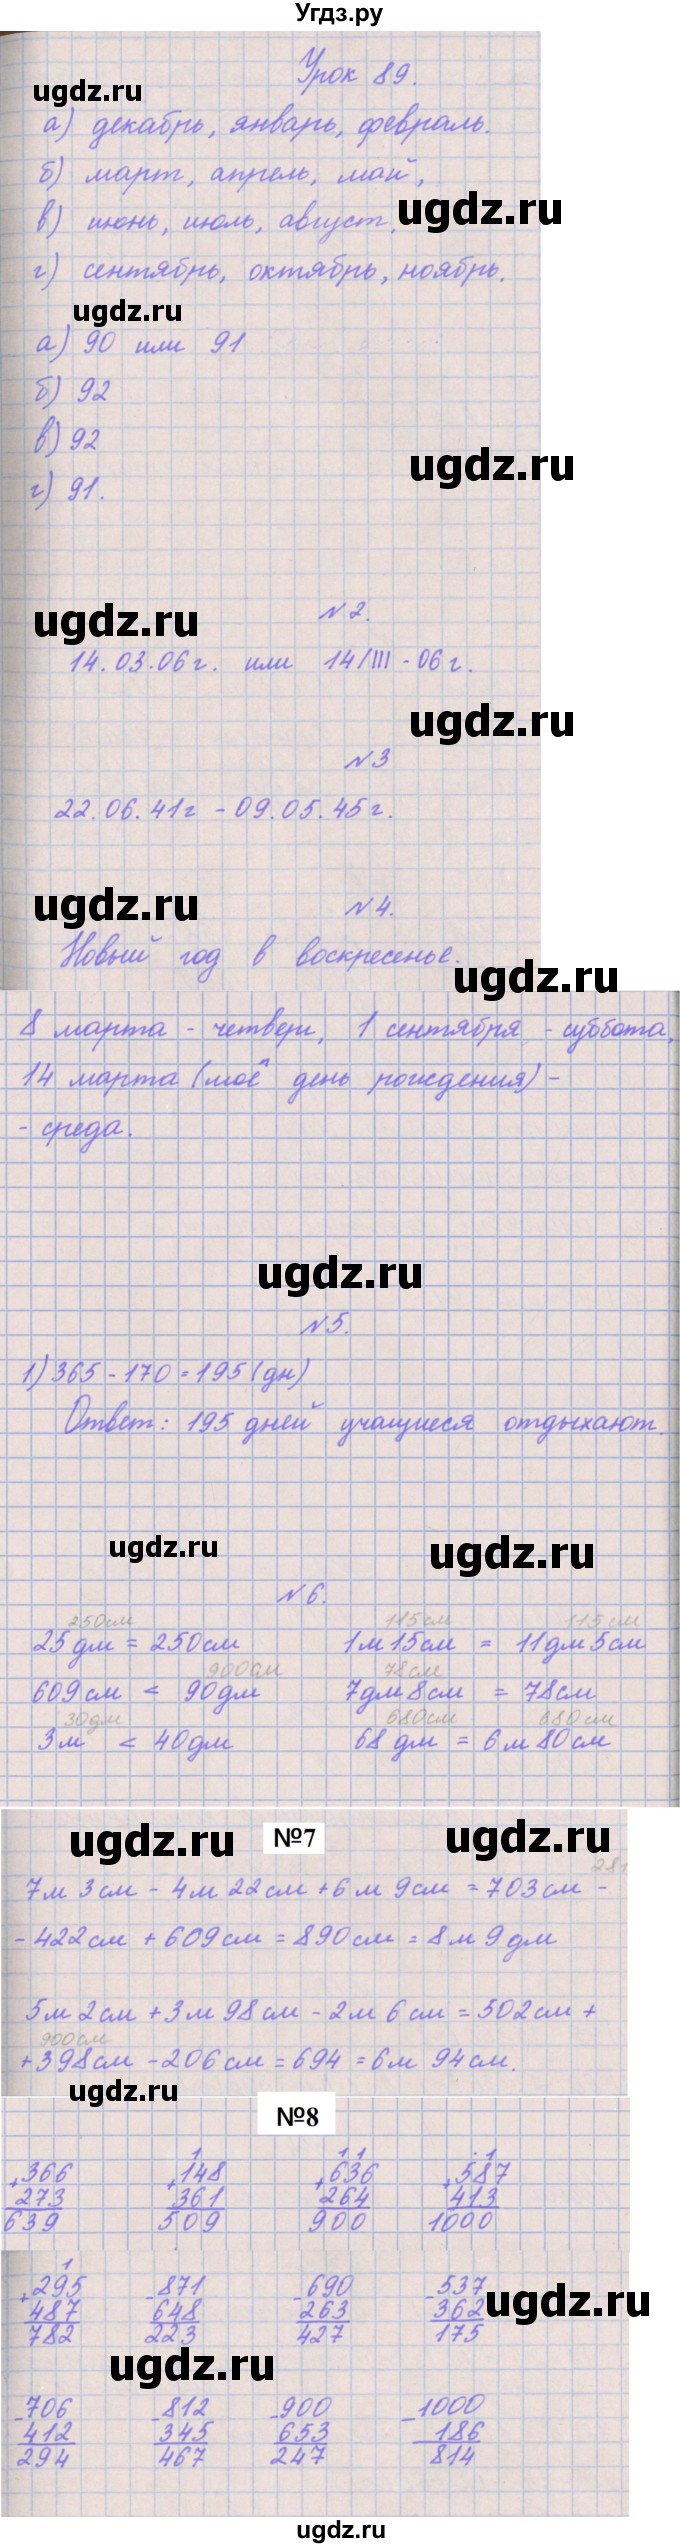 Угдз.ру
Урок 89.
ugdz.ru
а) декабрь, январь, февраль.
б) март, апрель, май,
ugdz.ru
в) июнь, июль, август,
г) сентябрь, октябрь, ноябрь.
ugdz.ru
а) 90 или 91
б) 92
в) 92
ugdz.ru
г) 91.
ugdz.ru
№2.
14.03.06г. или 14/III-06г.
ugdz.ru
№3
22.06.41г - 09.05.45г.
ugdz.ru
№4.
Новый год в воскресенье.
ugdz.ru
8 марта - четверг, 1 сентября - суббота,
14 марта (моё день рождения) -
- среда.
ugdz.ru
№5.
1) 365 - 170 = 195 (дн)
Ответ: 195 дней учащиеся отдыхают.
ugdz.ru
ugdz.ru
№6.
250см 115см 115см
25дм = 250см 1м 15см = 11дм 5см
900дм 78см
609см < 90дм 7дм 8см = 78см
30дм 680см 680см
3м < 40дм 68дм = 6м 80см
ugdz.ru
№7
ugdz.ru
281
7м 3см - 4м 22см + 6м 9см = 703см -
- 422см + 609см = 890см = 8м 9дм
5м 2см + 3м 98см - 2м 6см = 502см +
900см
+ 398см - 206см = 694 = 6м 94см.
ugdz.ru
№8
1 1 1 1
+366 +148 +636 +587
273 361 264 413
639 509 900 1000
1
+295 -871 -690 -537
487 648 263 362
782 223 427 175
ugdz.ru
ugdz.ru
-706 -812 -900 -1000
412 345 653 186
294 467 247 814
ugdz.ru